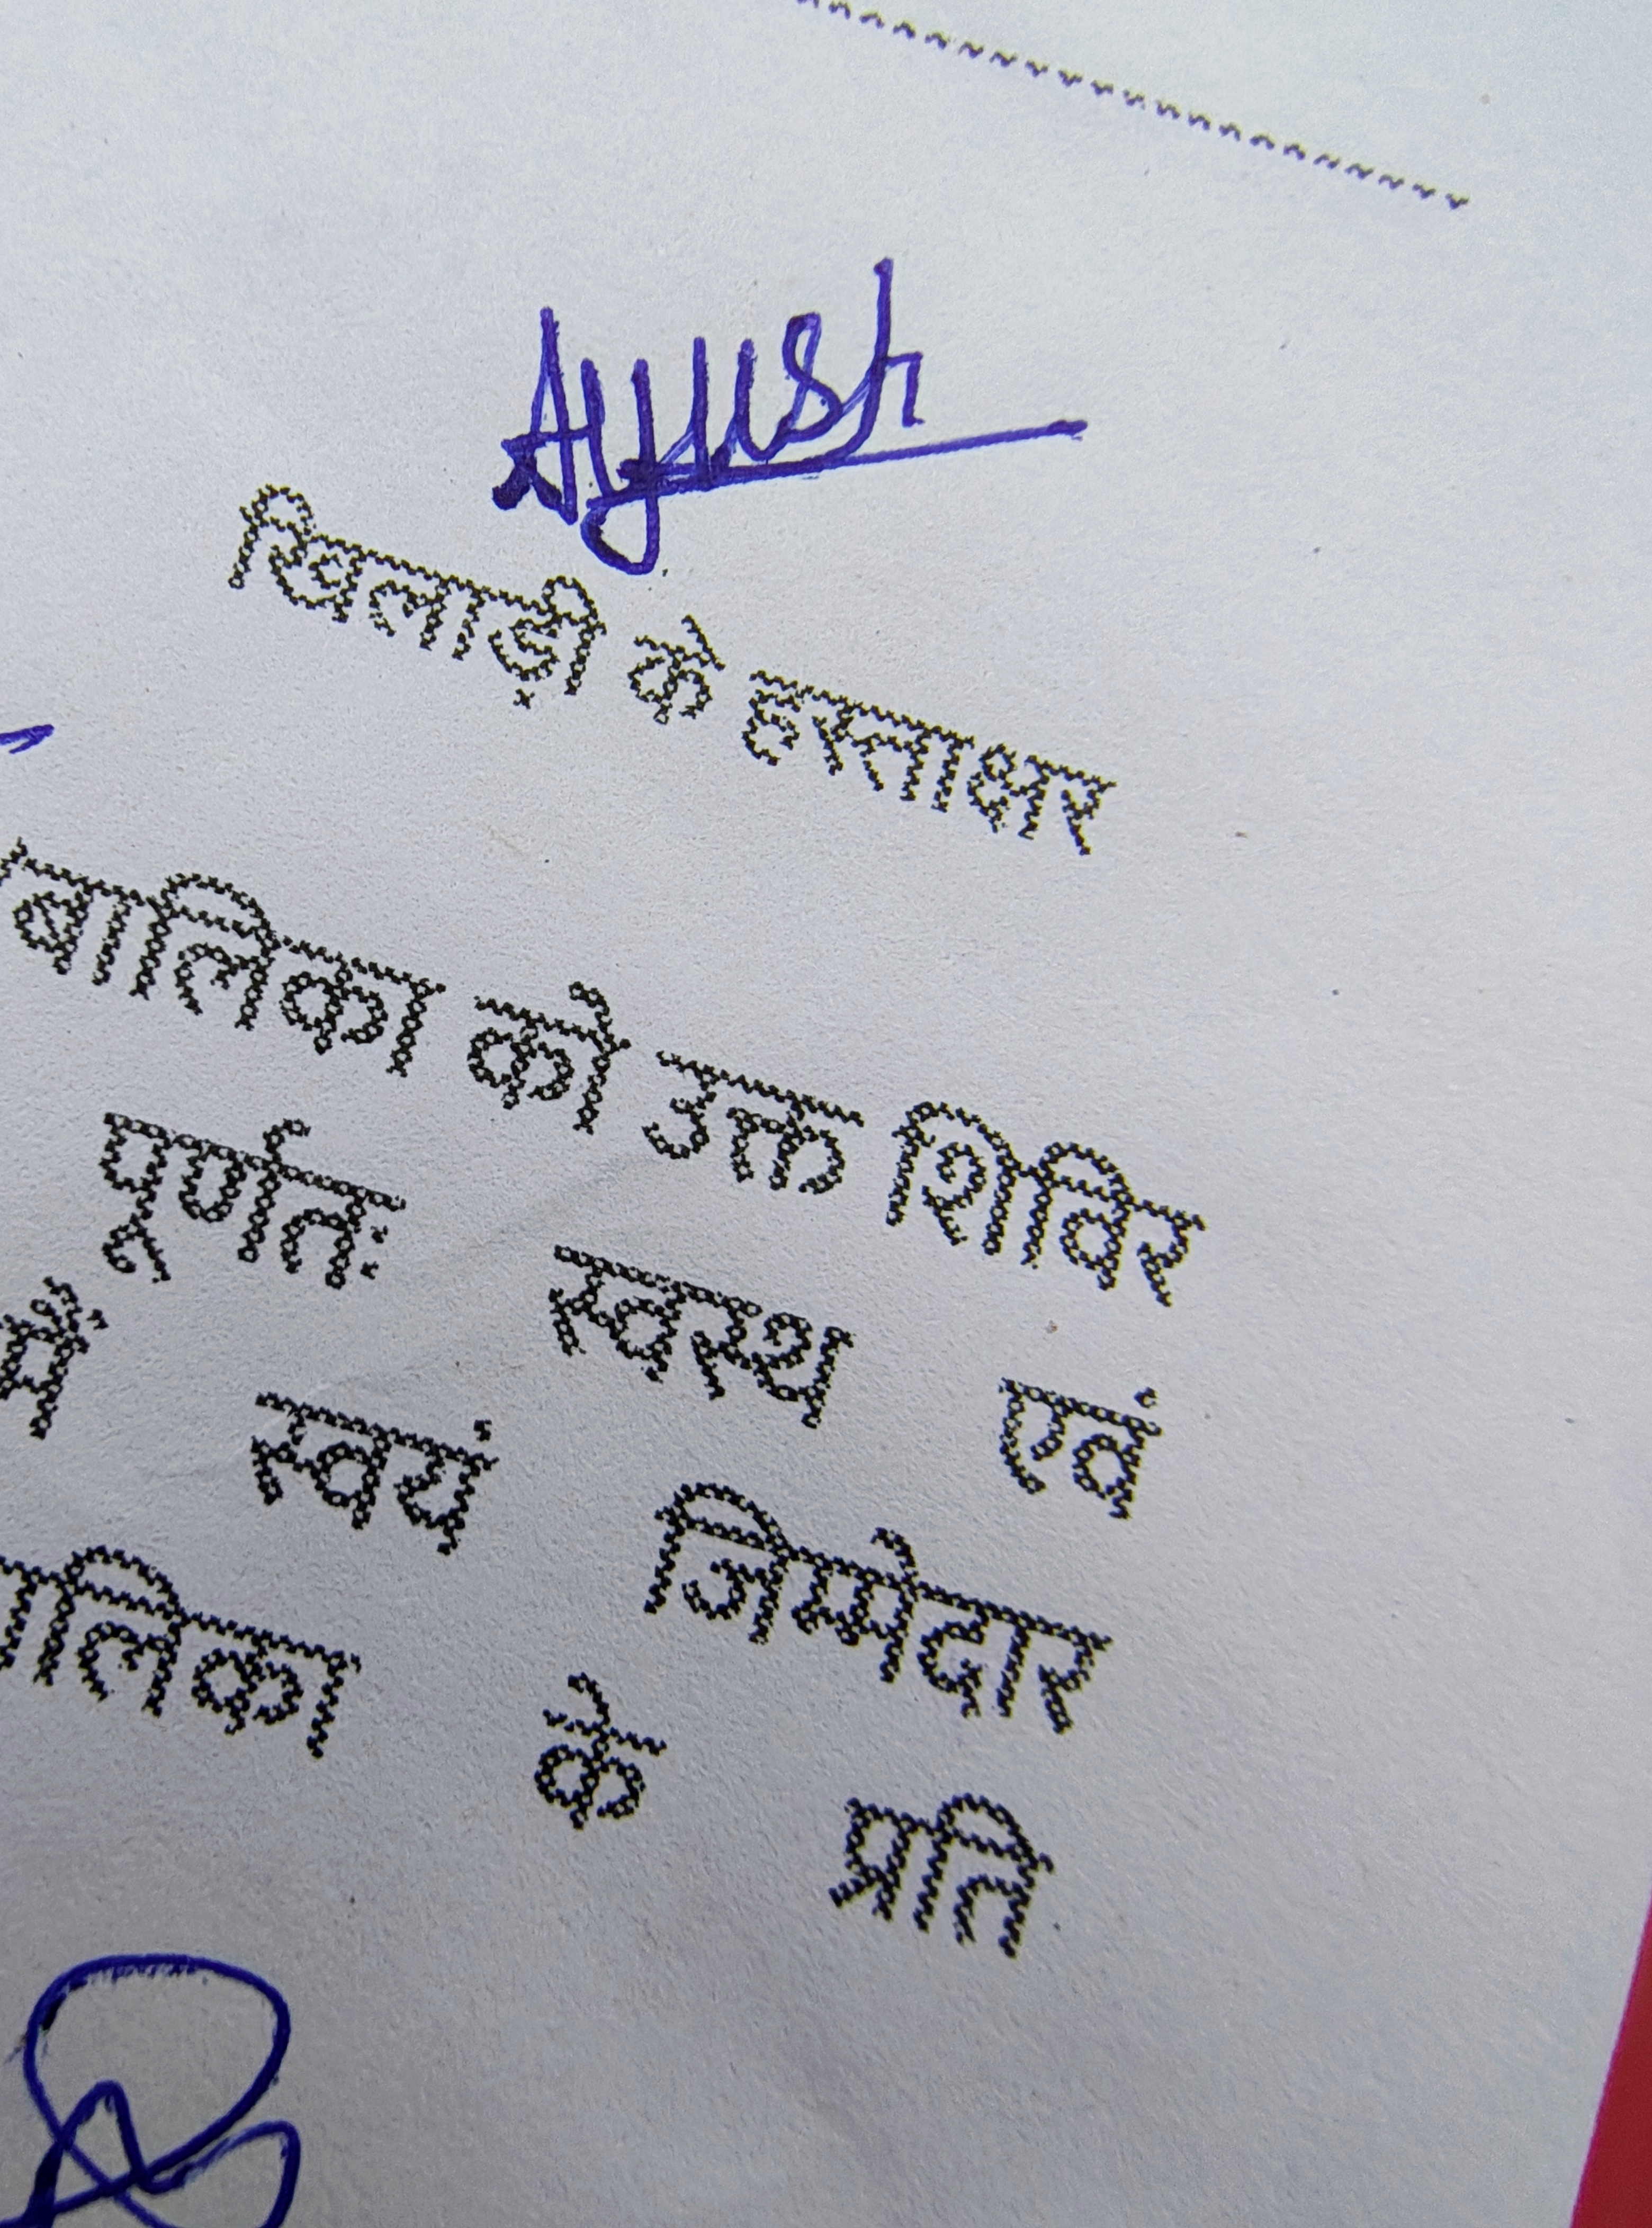 Ayush
खिलाड़ी के हस्ताक्षर
बालिका को उक्त शिविर
पूर्णतः स्वस्थ एवं
में स्वयं जिम्मेदार
लिका के प्रति